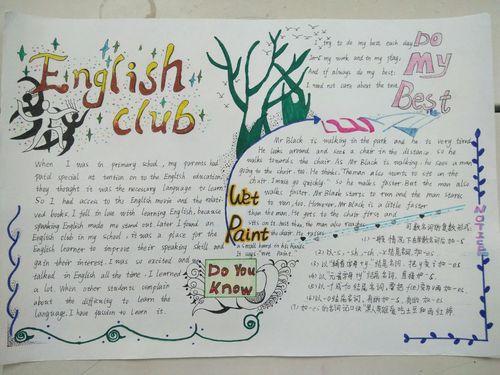 English
club
When I was in primary school, my parents had
paid special attention to the English education,
they thought it was the necessary language to learn.
So I had access to the English movie and the related
books. I fell in love with learning English, because
speaking English made me stand out later I found an
English club in my school, it was a place for the
English learner to improve their speaking skill and
gain their interest. I was so excited and
talked in English all the time. I learned
a lot. When other students complain
about the difficulty to learn the
language, I have passion to learn it.
Wet
Paint
Do You
Know
I try to do my best each day
In my work and in my play,
And if always do my best,
I need not care about the
Do
My
Best
Mr Black is walking in the park and he is very tired.
He looks around and sees a chair in the distance so he
walks towards the chair. As Mr Black is walking, he sees a man
going to the chair, too. He thinks, The man also wants to sit on the
chair I must go quickly." so he walks faster. But the man also
walks faster. Mr Black starts to run and the man starts
to run, too. However, Mr Black is a little faster
than the man. He gets to the chair first and
sits on it. Just then, the man also reaches
the chair. He
a small board in his hands.
It says: "Wet Paint.
NOTES
可数名词的复数形式:
(1) 一般情况下在单数名词后加-s
(2) 以-s, -sh, -ch, -x结尾名词, 加-es
(3) 以"辅音字母+y"结尾名词, 把y变i加-es
(4) 以"元音字母+y"结尾名词, 直接加-s
(5) 以-f或-fe结尾名词, 要把f(e)变为v再加-es
(6) 以-o结尾名词, 有的加-s, 有的加-es
(7) 加-es的名词记口诀"黑人英雄爱吃土豆和西红柿